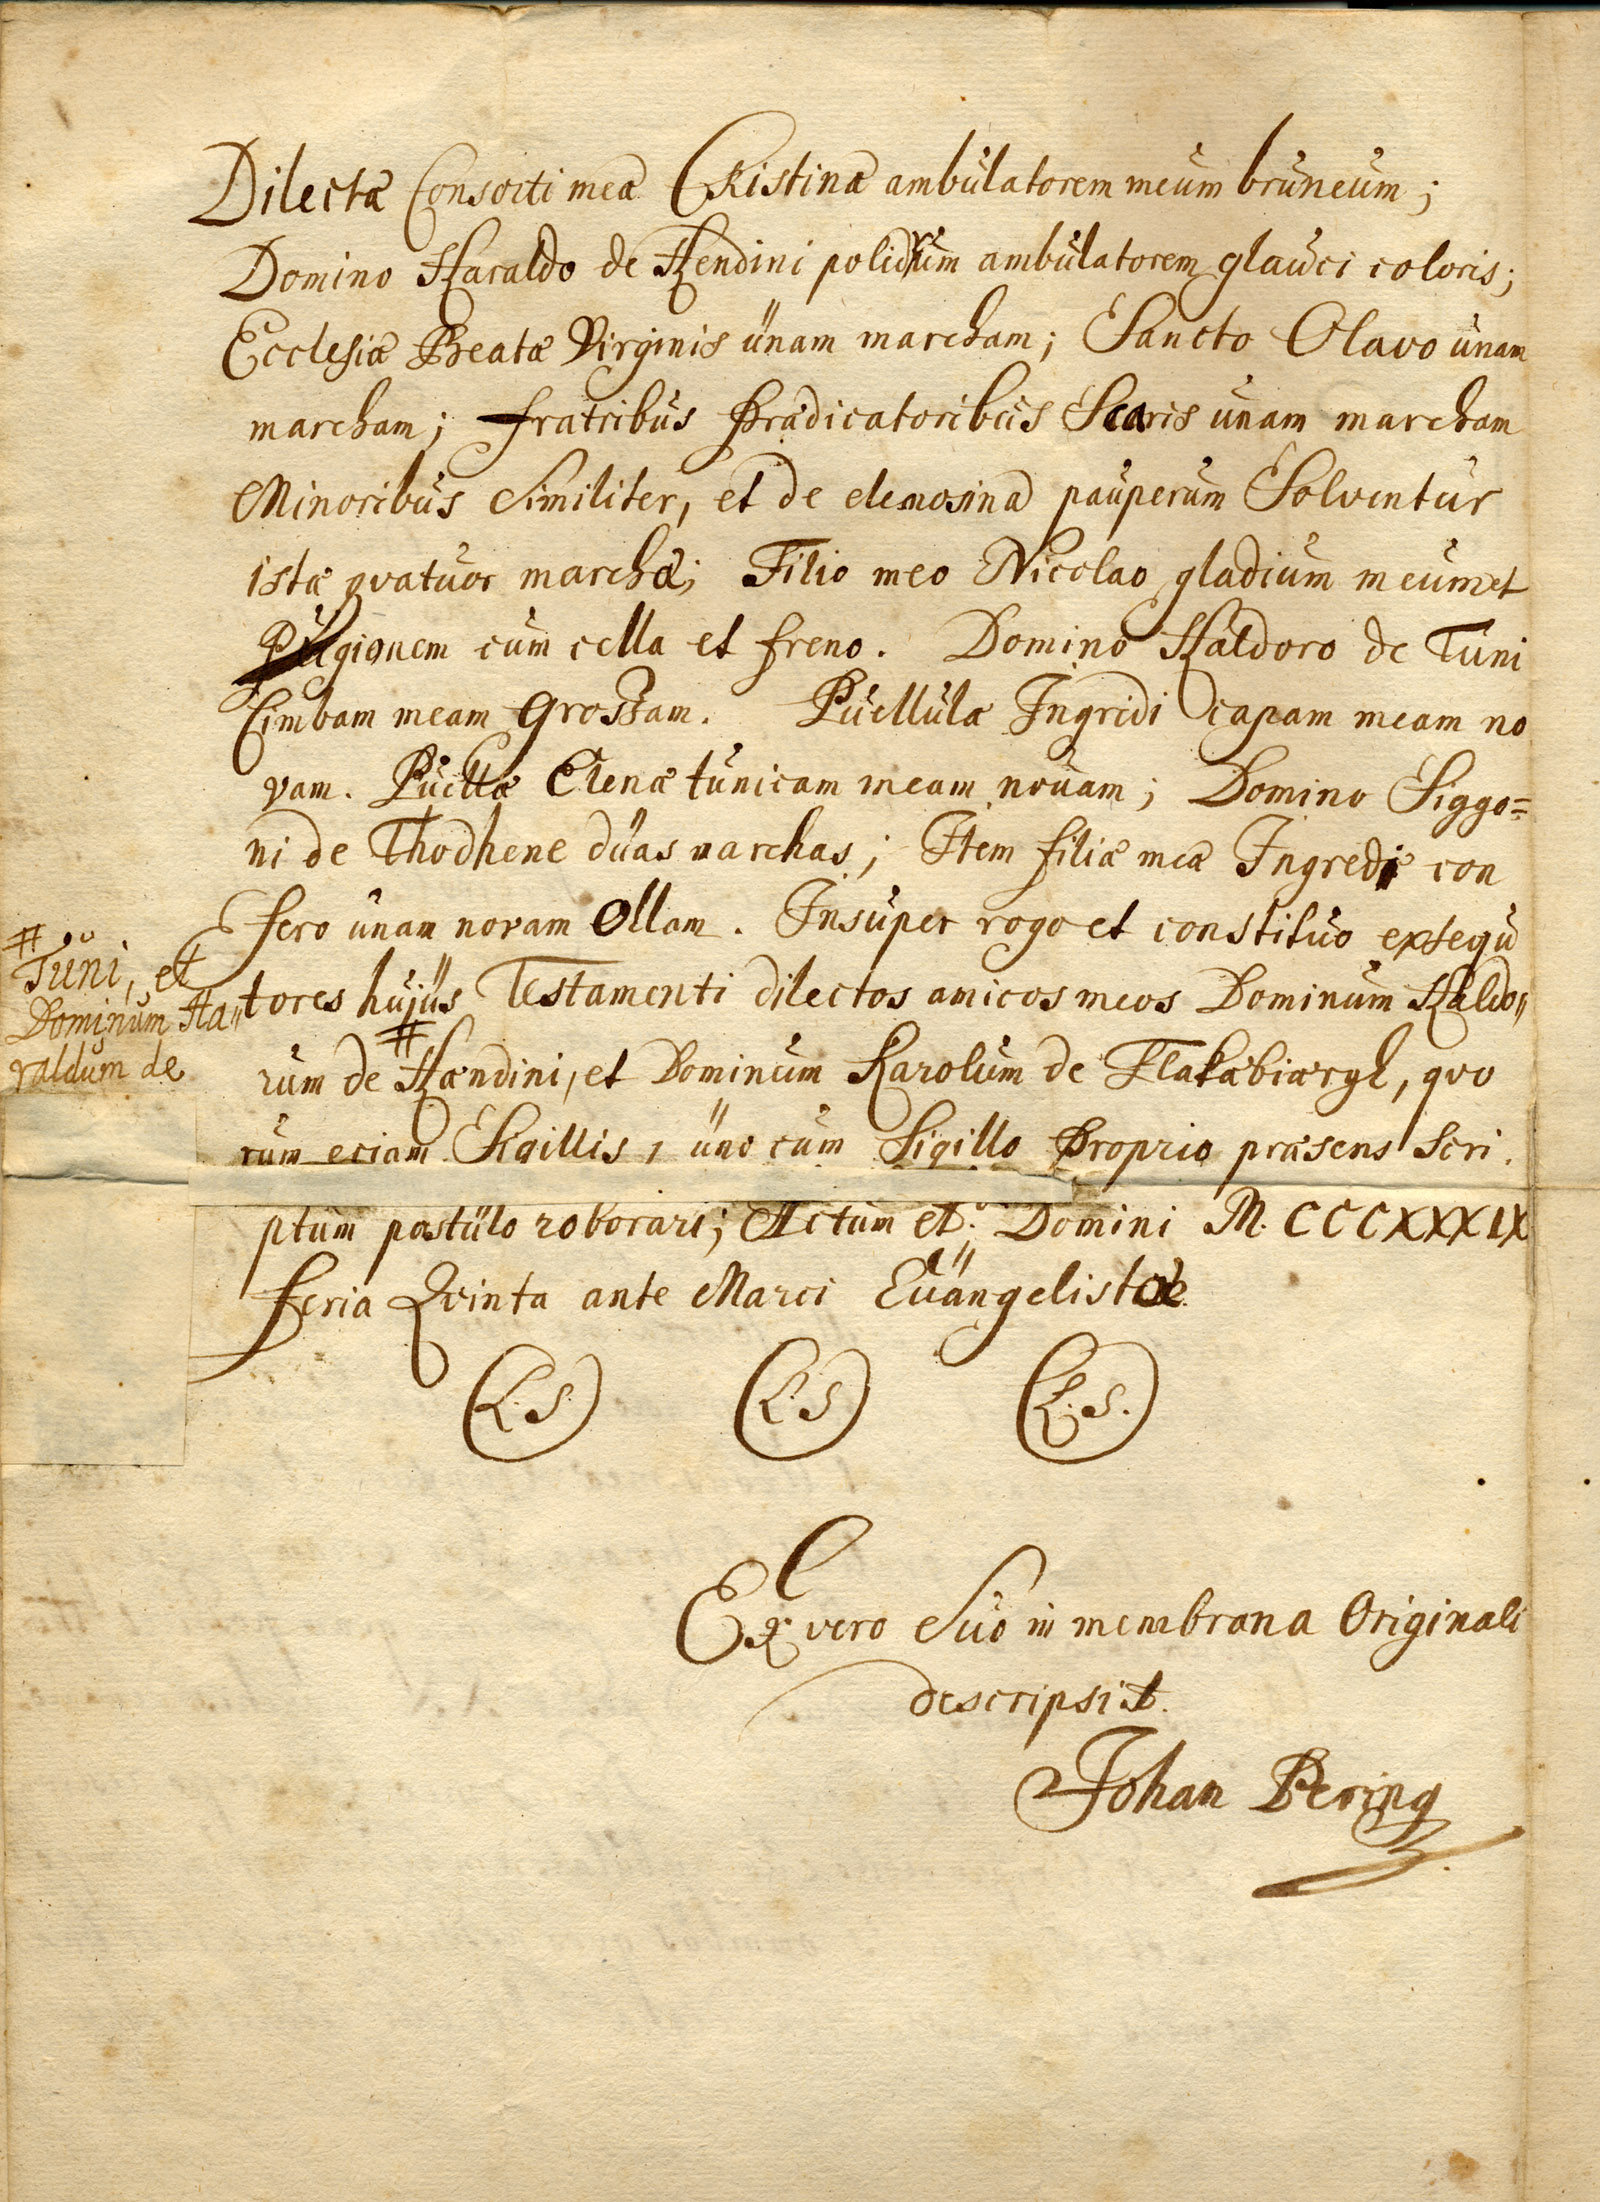 Dilectæ Consorti meæ Cristinæ ambulatorem meum bruneum;
Domino Haraldo de Hendini polidrum ambulatorem glauci coloris;
Ecclesiæ Beatæ Virginis unam marcham; Sancto Olavo unam
marcham; fratribus Prædicatoribus Scaris unam marcham
Minoribus similiter, et de elemosina pauperum Solventur
istæ qvatuor marchæ; Filio meo Nicolao gladium meum et
Pugionem cum cella et freno. Domino Haldoro de Tuni
Cimbam meam Grossam. Puellulæ Ingridi capam meam no
vam. Puellæ Elenæ tunicam meam novam; Domino Siggo=
ni de Thodhene duas marchas; Item filiæ meæ Ingredi con
fero unam novam Ollam. Insuper rogo et constituo exsequ
tores hujus Testamenti dilectos amicos meos Dominum Haldo„
rum de # Hændini, et Dominum Karolum de Flakabiærgh, qvo
rum eciam Sigillis, uno cum Sigillo Proprio præsens Scri.
ptum postulo roborari; Actum et. Domini M. CCCXXXIX
feria Qvinta ante Marci Euangelistæ
L.S. L.S L.S.
# Tuni, et
Dominum Ha„
raldum de
Ex vero Suo in membrana Originali
descripsit.
Johan Pering